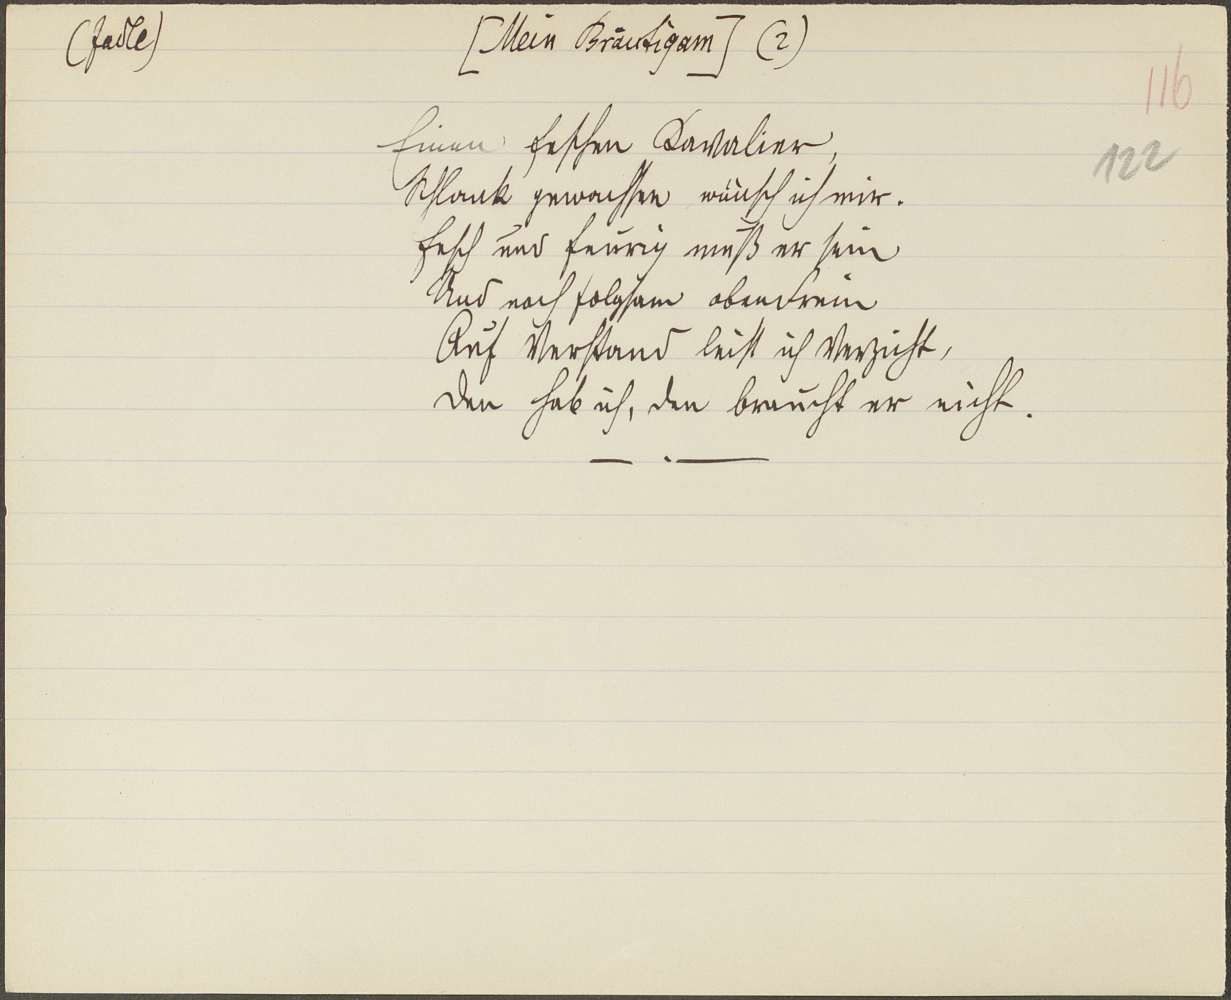 (Jadle) [Mein Bräutigam] (2)
116
122
Einen feschen Kavalier,
Schlank gewachsen wünsch ich mir.
Fesch und feurig muß er sein
Und noch folgsam obendrein
Auf Verstand leist ich Verzicht,
Den hab ich, den braucht er nicht.